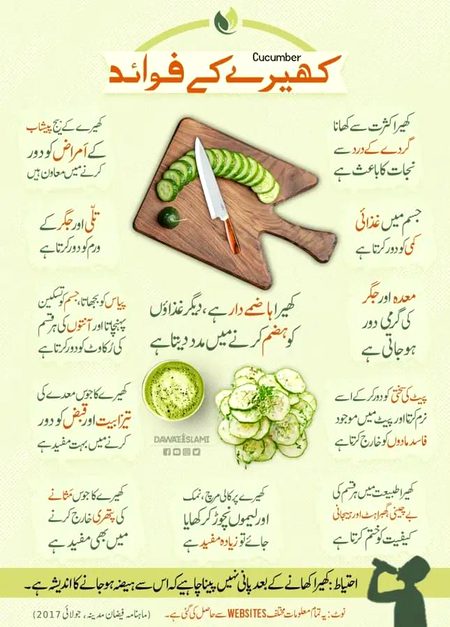 Cucumber
کھیرے کے فوائد
کھیرا کثرت سے کھانا
گردے کے درد سے
نجات کا باعث ہے
کھیرے کے بیج پیشاب
کے اَمراض کو دور
کرنے میں معاون ہیں
جسم میں غذائی
کمی کو دور کرتا ہے
تلّی اور جگر کے
ورم کو دور کرتا ہے
معدہ اور جگر
کی گرمی دور
ہو جاتی ہے
کھیرا ہاضمے دار ہے، دیگر غذاؤں
کو ہضم کرنے میں مدد دیتا ہے
پیاس کو بجھاتا، جسم کو تسکین
پہنچاتا اور آنتوں کی ہر قسم
کی رُکاوٹ کو دور کرتا ہے
پیٹ کی سختی کو دور کر کے اسے
نرم کرتا اور پیٹ میں موجود
فاسد مادوں کو خارج کرتا ہے
کھیرے کا جوس معدے کی
تیزابیت اور قبض کو دور
کرنے میں بہت مفید ہے
DAWATEISLAMI
کھیرا طبیعت میں ہر قسم کی
بے چینی، گھبراہٹ اور ہیجانی
کیفیت کو ختم کرتا ہے
کھیرے پر کالی مرچ، نمک
اور لیموں نچوڑ کر کھایا
جائے تو زیادہ مفید ہے
کھیرے کا جوس مَثانے
کی پتھری خارج کرنے
میں بھی مفید ہے
احتیاط: کھیرا کھانے کے بعد پانی نہیں پینا چاہیے کہ اس سے ہیضہ ہو جانے کا اندیشہ ہے۔
نوٹ: یہ تمام معلومات مختلف WEBSITES سے حاصل کی گئی ہے۔
(ماہنامہ فیضانِ مدینہ، جولائی 2017)